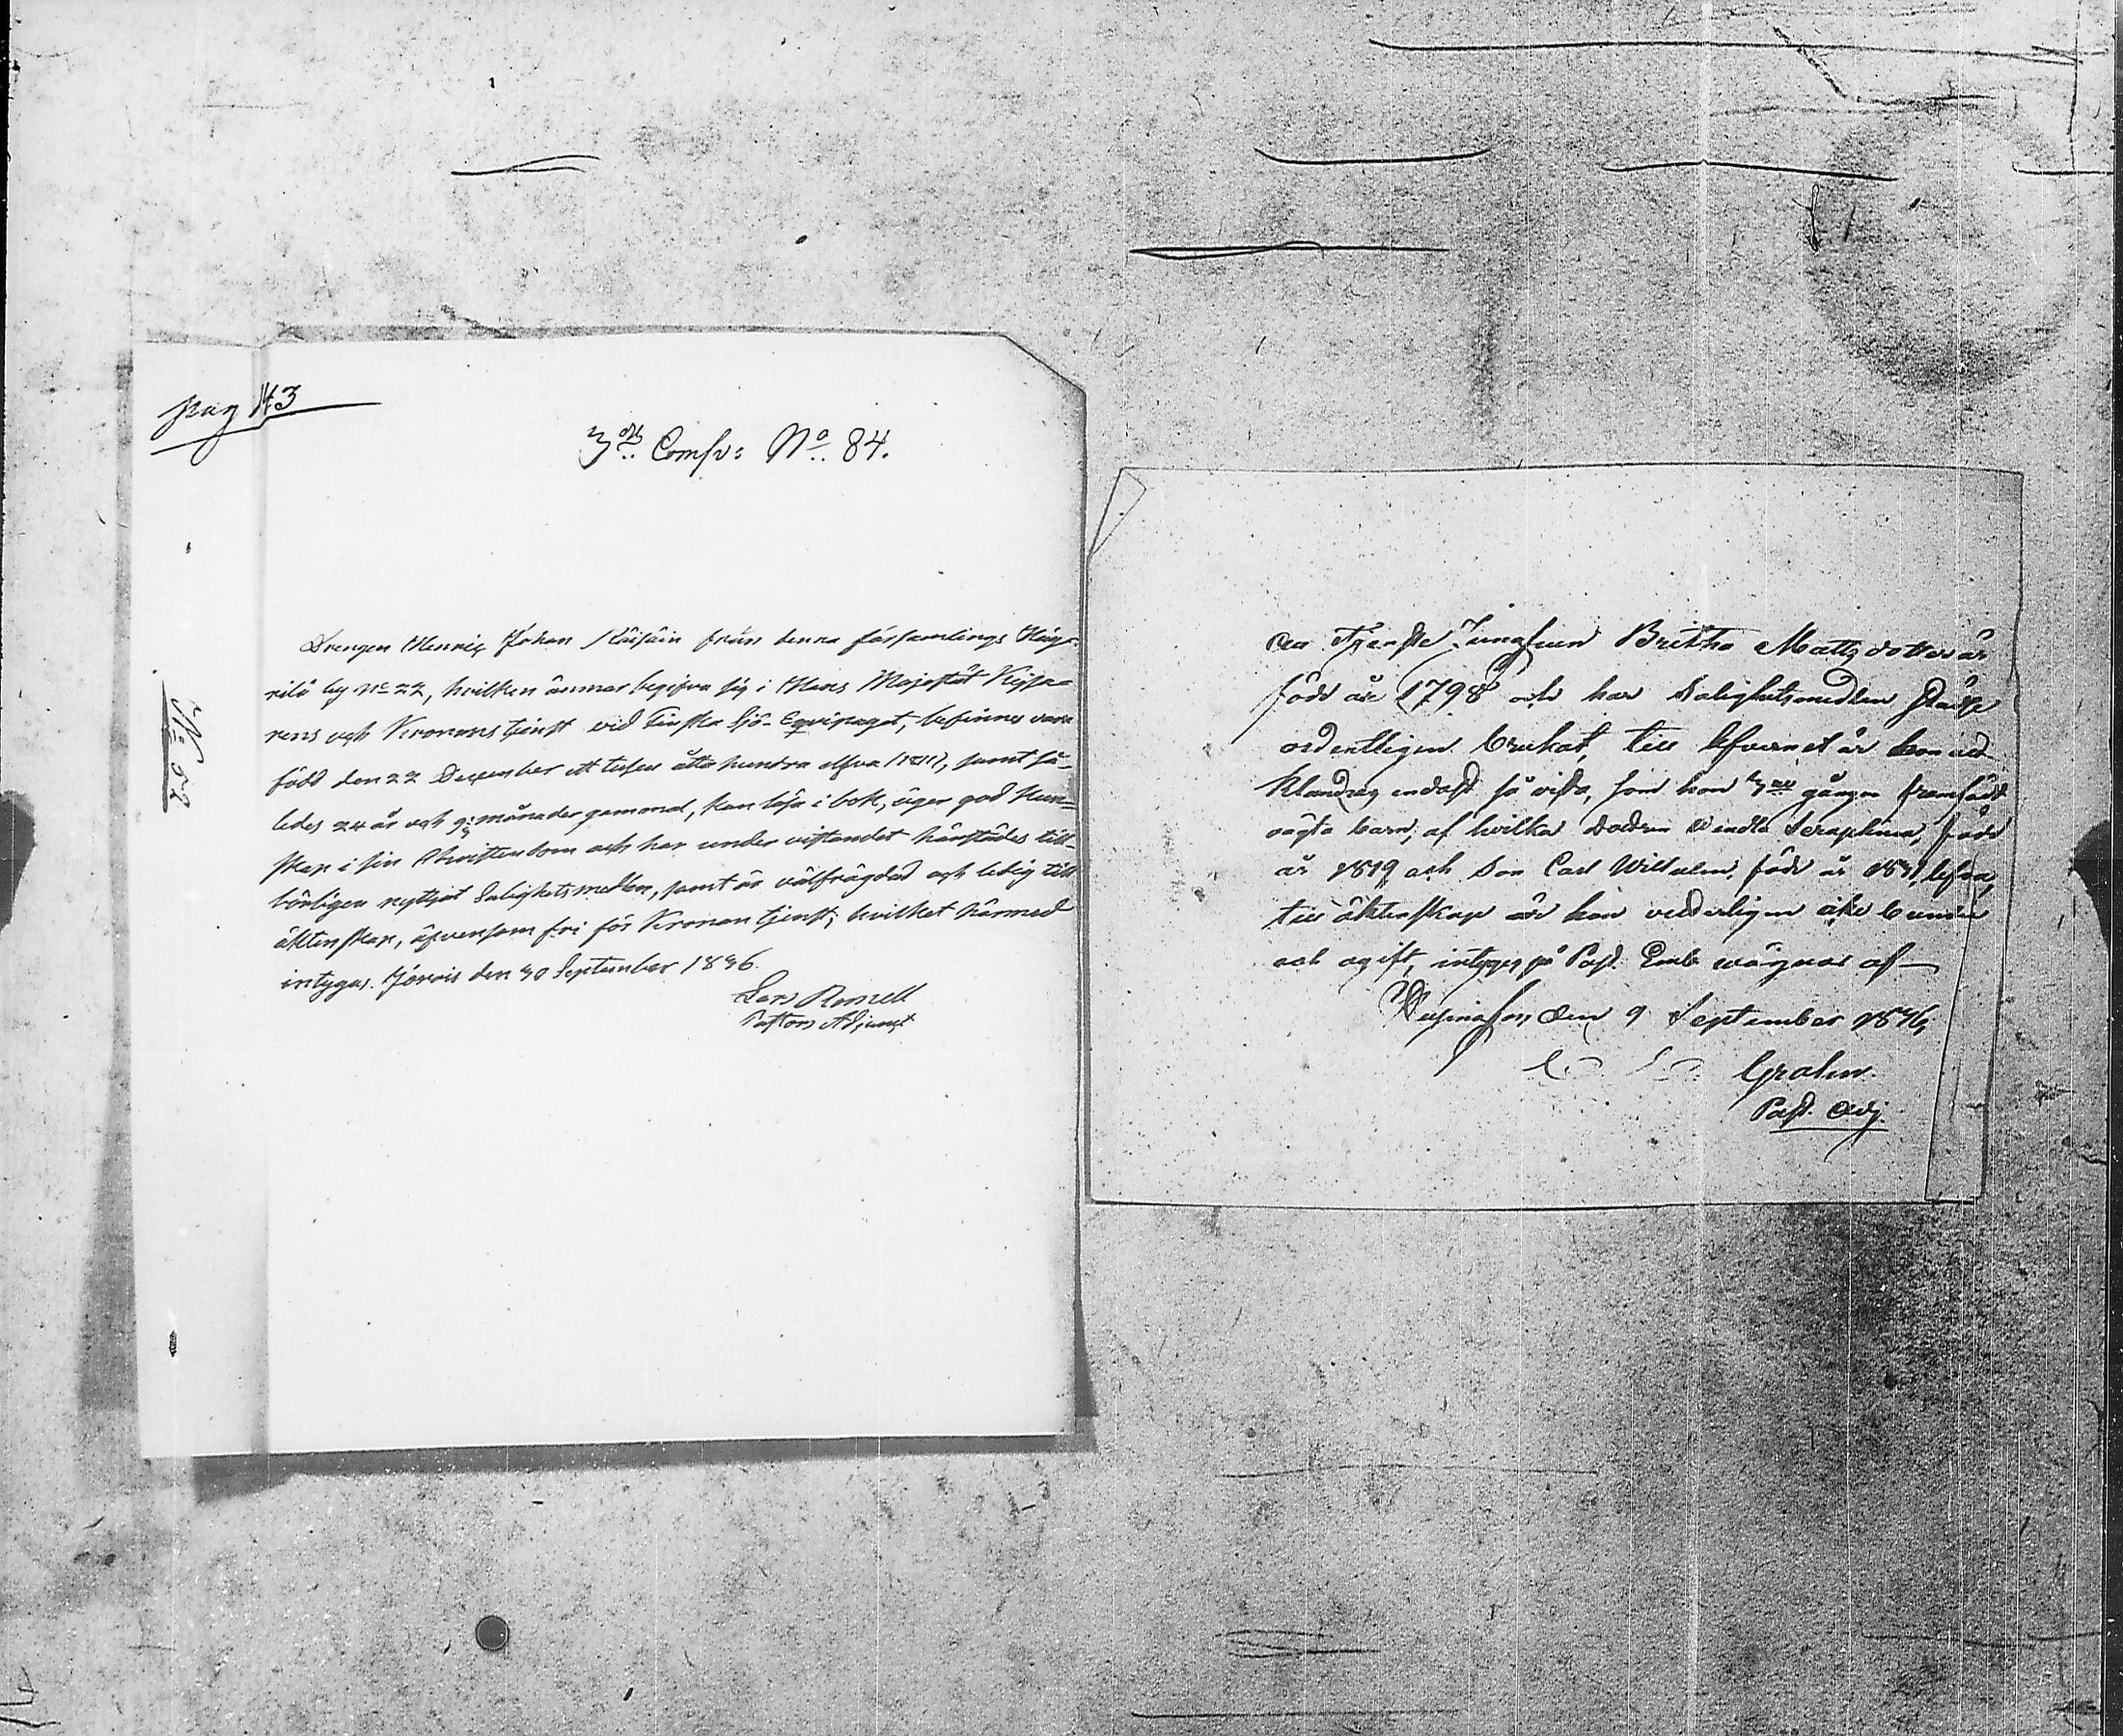 pag 143
3die Comp: No. 84.
No 52
Drengen Henric Johan Räisäin från denna församlings Häy-
rilä by No 22, hvilken ämnar begifva sig i Hans Majestät Kejsa-
rens och Kronans tjenst vid Finska Sjö-Equipaget, befinnes vara
född den 22 December ett tusen åtta hundra elfva (1811), samt så-
ledes 24 år och 9 månader gammal, kan läsa i bok, äger god Kun-
skap i sin Christendom och har under vistandet härstädes till-
börligen nyttjat Salighetsmedlen, samt är välfrägdad och ledig till
äktenskap, äfvensom fri för Kronans tjenst; hvilket härmed
intygas. Jorois den 30 September 1836.
Lars Romell
Pastors Adjunct
Att Tjenste Jungfrun Britha Mattsdotter är
född år 1798 och har Salighetsmedlen
ordentligen brukat, till lefvernet är hon
klandrag endast så vida, som hon gången framfödt
oägta barn, af hvilka dottren Wendla Seraphina, född
år 1819 och Son Carl Wilhelm, född år lefva,
till äktenskap är hon vedderligen icke bunden
och ogift, intygas på Past. Emb. wägnar af
den 9 September 1836,
Grahn.
Past. Adj.